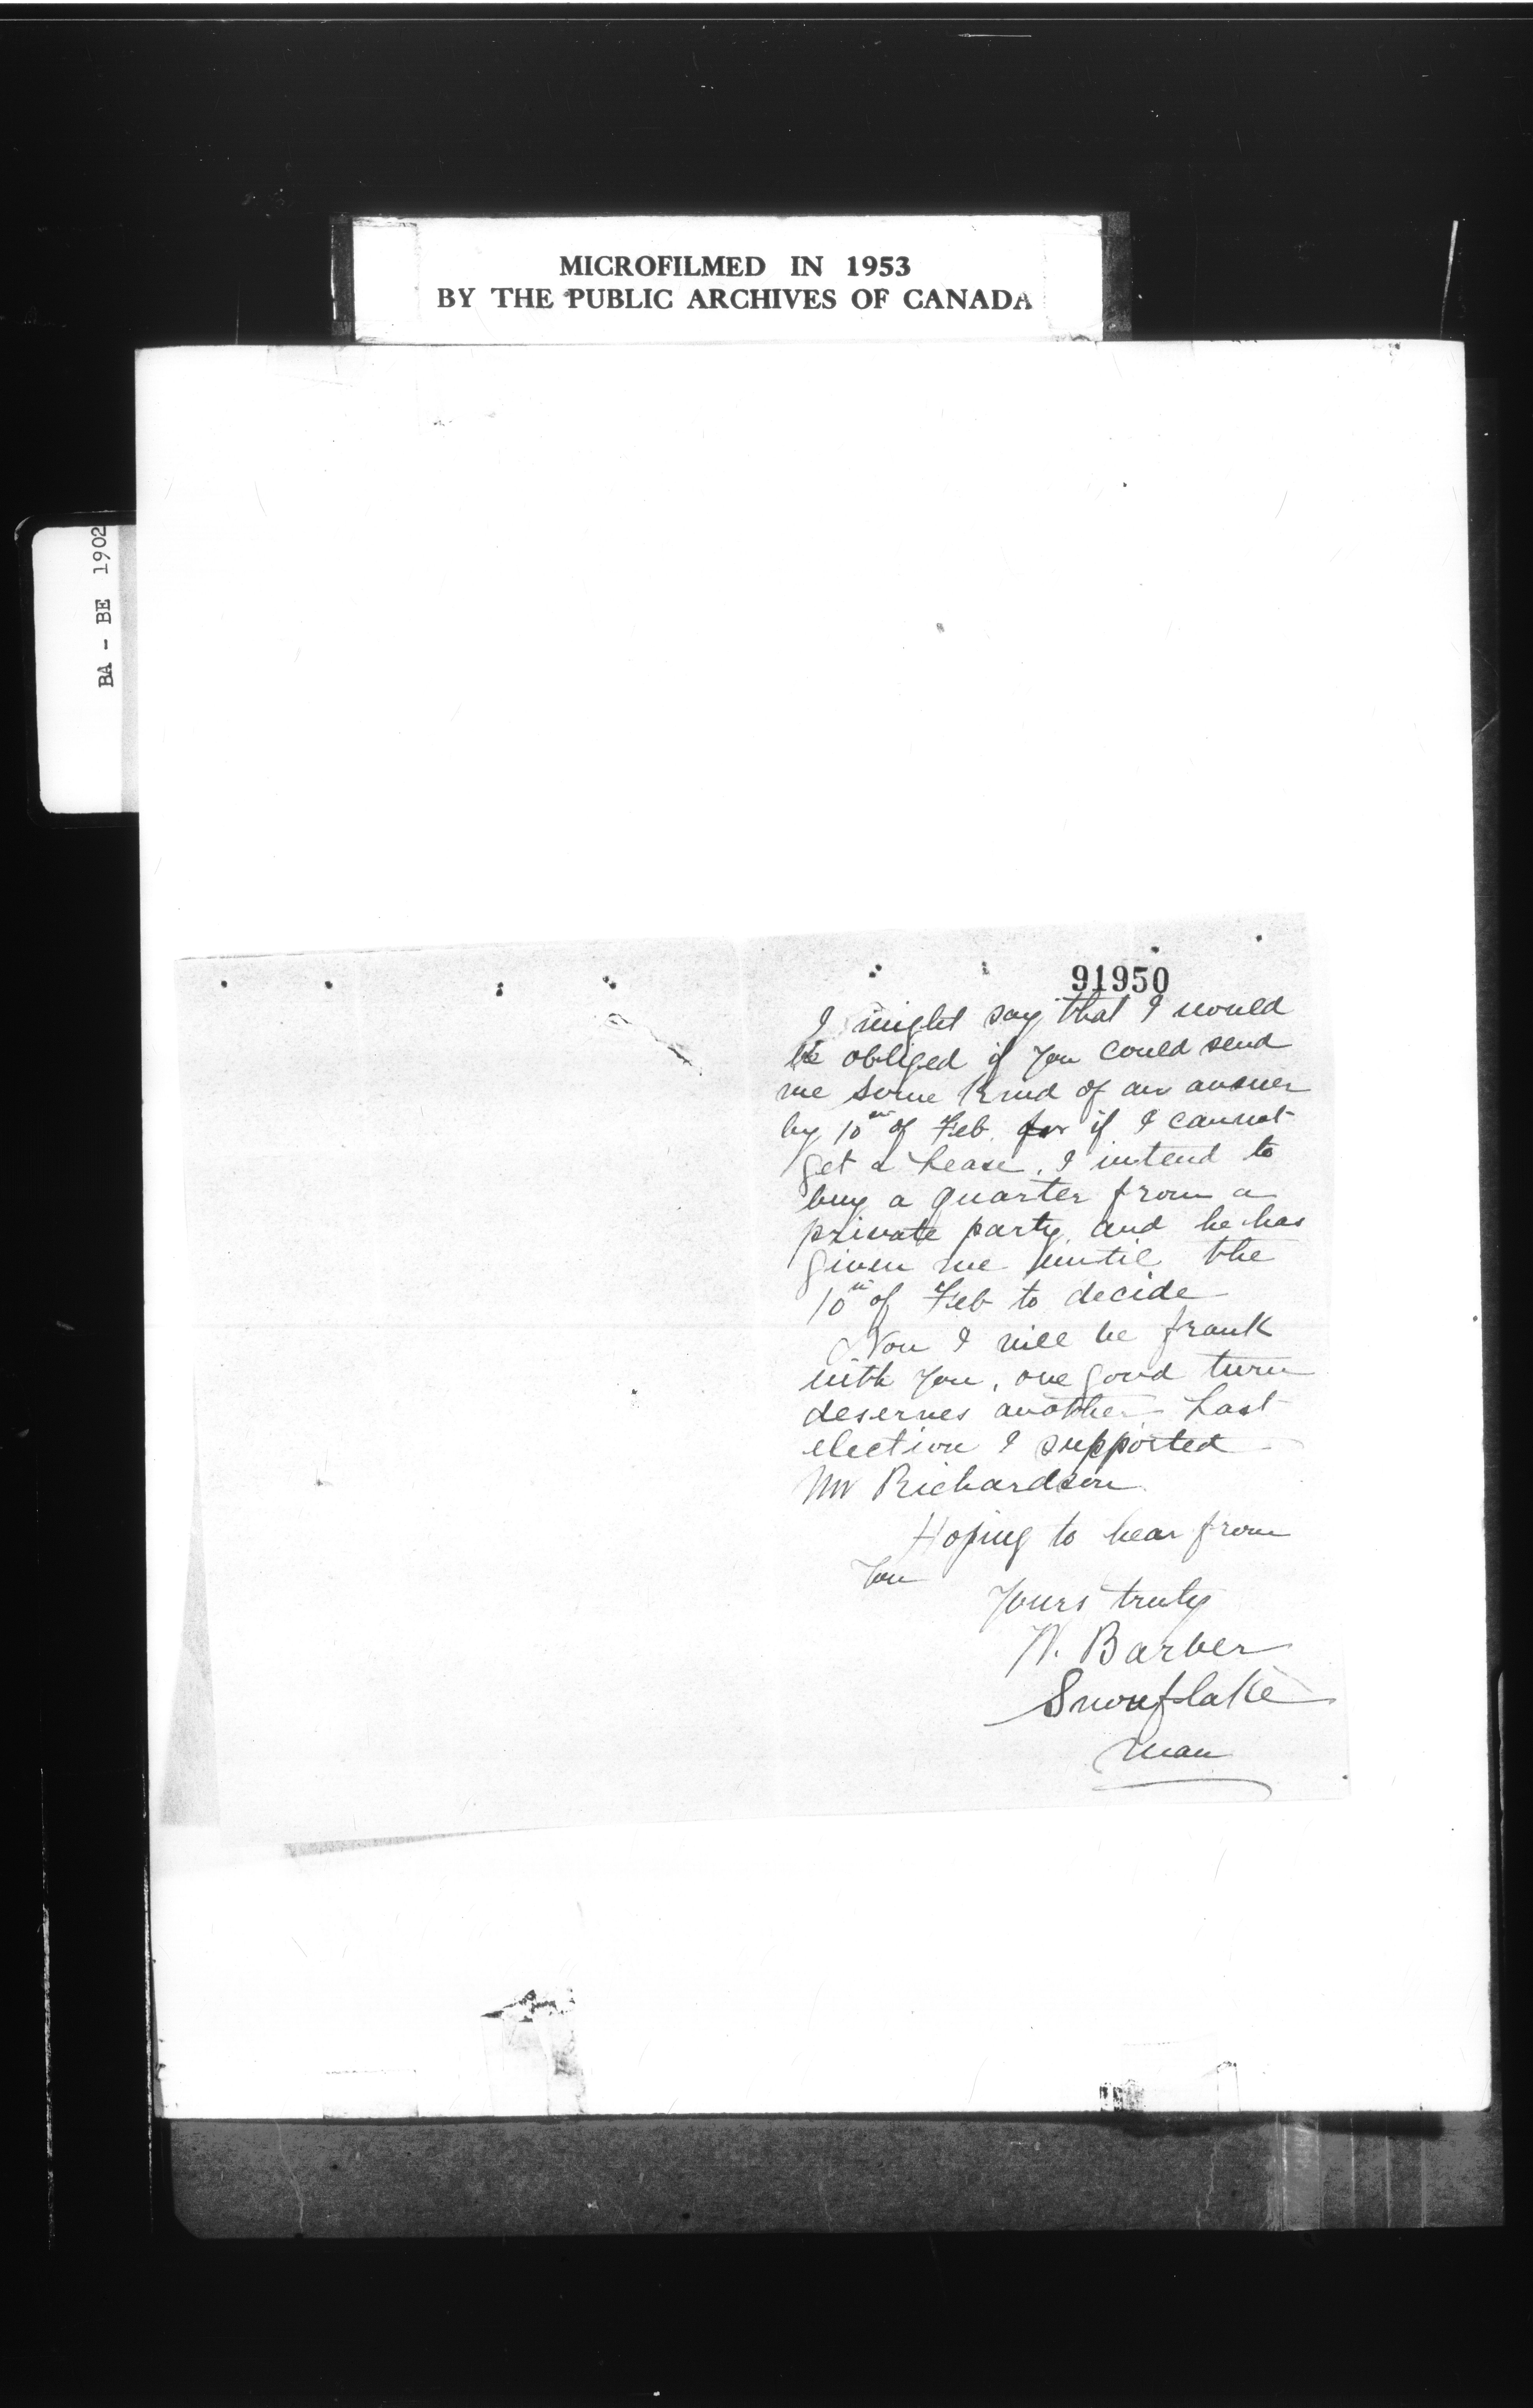 MICROFILMED IN 1953
BY THE PUBLIC ARCHIVES OF CANADA
BA - BE 1902
91950
I might say that I would
be obliged if you could send
me some kind of an answer
by 10th of Feb. for if I cannot
get a Lease, I intend to
buy a quarter from a
private party, and he has
given me until the
10th of Feb to decide
Now I will be frank
with you, one good turn
deserves another. Last
election I supported
Mr Richardson.
Hoping to hear from
you
Yours truly
W. Barber
Snowflake
Man